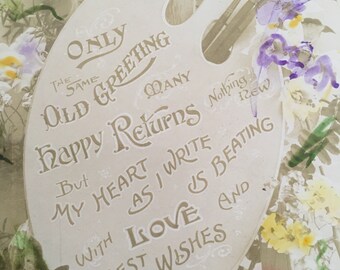 ONLY
THE SAME
OLD GREETING
MANY
Nothing New
Happy Returns
But
MY HEART AS I WRITE
IS BEATING
WITH LOVE AND
BEST WISHES